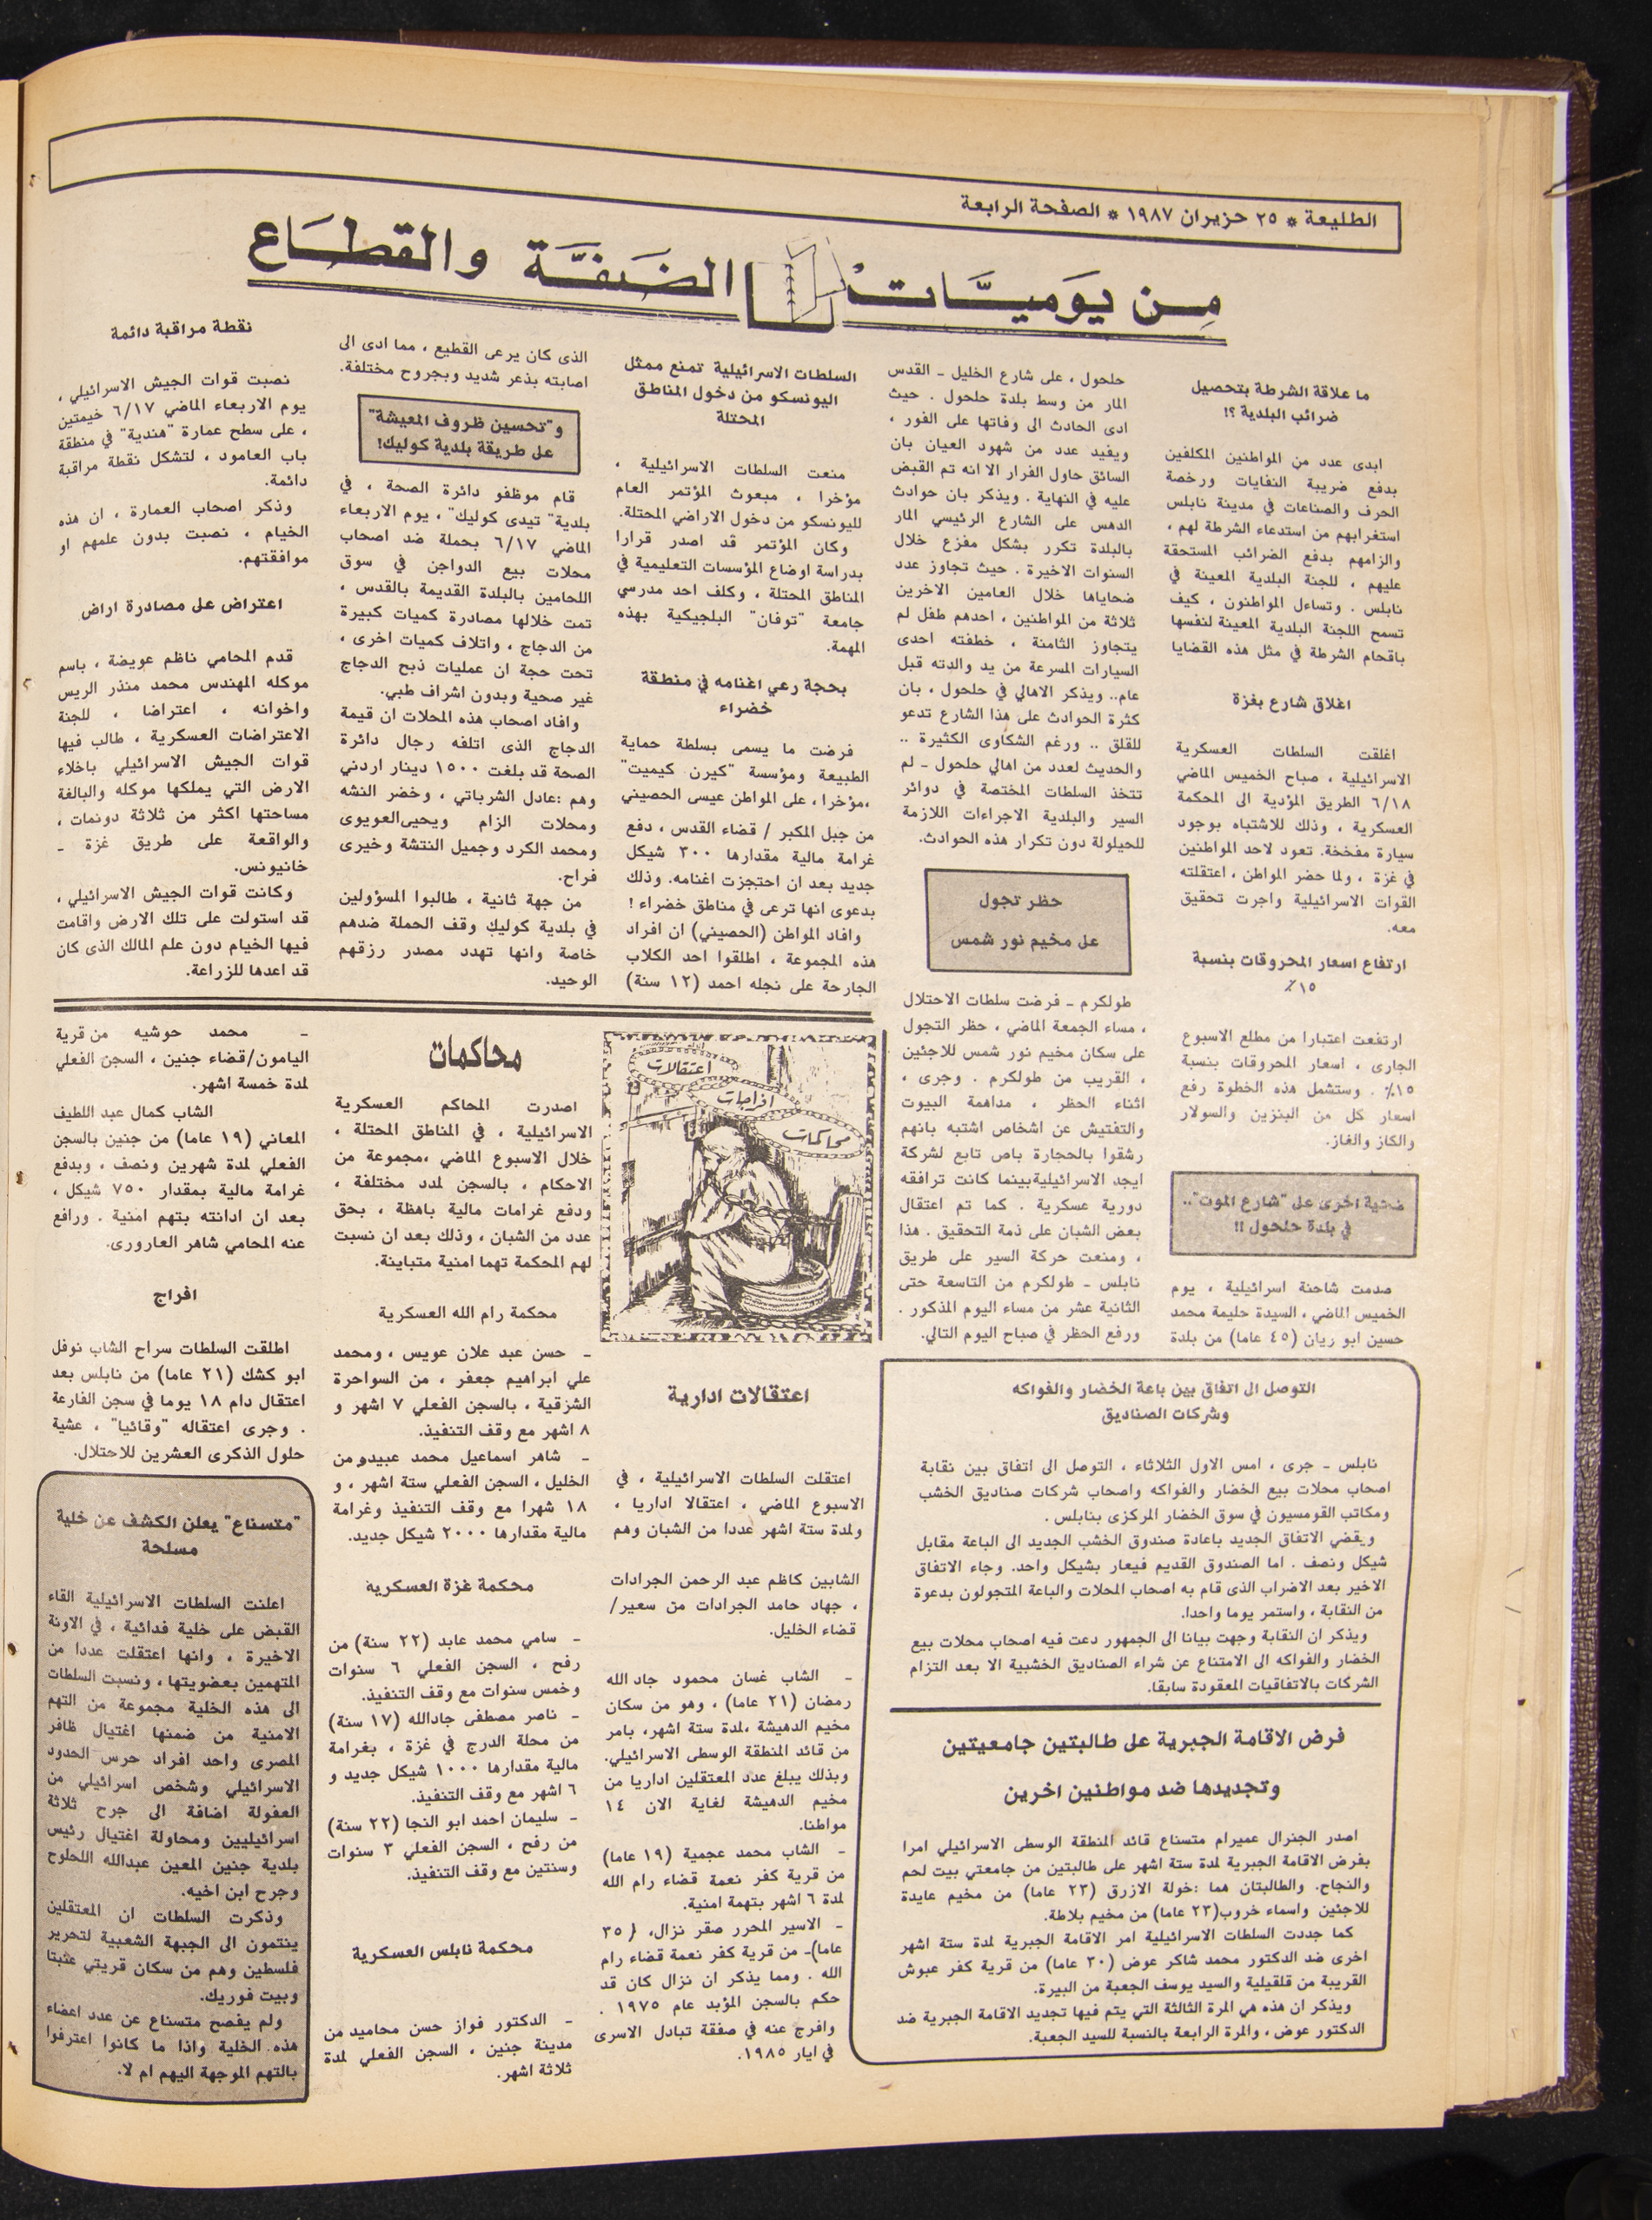 الطليعة * ٢٥ حزيران ١٩٨٧ * الصفحة الرابعة
مِن يوَميَّات الضَفَّة والقطَاع
ما علاقة الشرطة بتحصيل
ضرائب البلدية ؟!
ابدى عدد من المواطنين المكلفين
بدفع ضريبة النفايات ورخصة
الحرف والصناعات في مدينة نابلس
استغرابهم من استدعاء الشرطة لهم ،
والزامهم بدفع الضرائب المستحقة
عليهم ، للجنة البلدية المعينة في
نابلس . وتساءل المواطنون ، كيف
تسمح اللجنة البلدية المعينة لنفسها
باقحام الشرطة في مثل هذه القضايا
اغلاق شارع بغزة
اغلقت السلطات العسكرية
الاسرائيلية ، صباح الخميس الماضي
٦/١٨ الطريق المؤدية الى المحكمة
العسكرية ، وذلك للاشتباه بوجود
سيارة مفخخة. تعود لاحد المواطنين
في غزة ، ولما حضر المواطن ، اعتقلته
القوات الاسرائيلية واجرت تحقيق
معه.
ارتفاع اسعار المحروقات بنسبة
١٥٪
ارتفعت اعتبارا من مطلع الاسبوع
الجارى ، اسعار المحروقات بنسبة
١٥٪ . وستشمل هذه الخطوة رفع
اسعار كل من البنزين والسولار
والكاز والغاز.
ضحية اخرى على "شارع الموت"..
في بلدة حلحول !!
صدمت شاحنة اسرائيلية ، يوم
الخميس الماضي ، السيدة حليمة محمد
حسين ابو ريان (٤٥ عاما) من بلدة
حلحول ، على شارع الخليل ـ القدس
المار من وسط بلدة حلحول . حيث
ادى الحادث الى وفاتها على الفور ،
ويفيد عدد من شهود العيان بان
السائق حاول الفرار الا انه تم القبض
عليه في النهاية . ويذكر بان حوادث
الدهس على الشارع الرئيسي المار
بالبلدة تكرر بشكل مفزع خلال
السنوات الاخيرة . حيث تجاوز عدد
ضحاياها خلال العامين الاخرين
ثلاثة من المواطنين ، احدهم طفل لم
يتجاوز الثامنة ، خطفته احدى
السيارات المسرعة من يد والدته قبل
عام.. ويذكر الاهالي في حلحول ، بان
كثرة الحوادث على هذا الشارع تدعو
للقلق .. ورغم الشكاوى الكثيرة ..
والحديث لعدد من اهالي حلحول ـ لم
تتخذ السلطات المختصة في دوائر
السير والبلدية الاجراءات اللازمة
للحيلولة دون تكرار هذه الحوادث.
حظر تجول
على مخيم نور شمس
طولكرم ـ فرضت سلطات الاحتلال
، مساء الجمعة الماضي ، حظر التجول
على سكان مخيم نور شمس للاجئين
، القريب من طولكرم . وجرى ،
اثناء الحظر ، مداهمة البيوت
والتفتيش عن اشخاص اشتبه بانهم
رشقوا بالحجارة باص تابع لشركة
ايجد الاسرائيلية بينما كانت ترافقه
دورية عسكرية . كما تم اعتقال
بعض الشبان على ذمة التحقيق . هذا
، ومنعت حركة السير على طريق
نابلس ـ طولكرم من التاسعة حتى
الثانية عشر من مساء اليوم المذكور .
ورفع الحظر في صباح اليوم التالي.
السلطات الاسرائيلية تمنع ممثل
اليونسكو من دخول المناطق
المحتلة
منعت السلطات الاسرائيلية ،
مؤخرا ، مبعوث المؤتمر العام
لليونسكو من دخول الاراضي المحتلة.
وكان المؤتمر قد اصدر قرارا
بدراسة اوضاع المؤسسات التعليمية في
المناطق المحتلة ، وكلف احد مدرسي
جامعة "توفان" البلجيكية بهذه
المهمة.
بحجة رعي اغنامه في منطقة
خضراء
فرضت ما يسمى بسلطة حماية
الطبيعة ومؤسسة "كيرن كيميت"
،مؤخرا ، على المواطن عيسى الحصيني
من جبل المكبر / قضاء القدس ، دفع
غرامة مالية مقدارها ٣٠٠ شيكل
جديد بعد ان احتجزت اغنامه. وذلك
بدعوى انها ترعى في مناطق خضراء !
وافاد المواطن (الحصيني) ان افراد
هذه المجموعة ، اطلقوا احد الكلاب
الجارحة على نجله احمد (١٢ سنة)
الذى كان يرعى القطيع ، مما ادى الى
اصابته بذعر شديد وبجروح مختلفة.
و"تحسين ظروف المعيشة"
على طريقة بلدية كوليك!
قام موظفو دائرة الصحة ، في
بلدية" تيدى كوليك" ، يوم الاربعاء
الماضي ٦/١٧ بحملة ضد اصحاب
محلات بيع الدواجن في سوق
اللحامين بالبلدة القديمة بالقدس ،
تمت خلالها مصادرة كميات كبيرة
من الدجاج ، واتلاف كميات اخرى ،
تحت حجة ان عمليات ذبح الدجاج
غير صحية وبدون اشراف طبي.
وافاد اصحاب هذه المحلات ان قيمة
الدجاج الذى اتلفه رجال دائرة
الصحة قد بلغت ١٥٠٠ دينار اردني
وهم :عادل الشرباتي ، وخضر النشه
ومحلات الزام ويحيى العويوى
ومحمد الكرد وجميل النتشة وخيرى
فراح.
من جهة ثانية ، طالبوا المسؤولين
في بلدية كوليك وقف الحملة ضدهم
خاصة وانها تهدد مصدر رزقهم
الوحيد.
نقطة مراقبة دائمة
نصبت قوات الجيش الاسرائيلي ،
يوم الاربعاء الماضي ٦/١٧ خيمتين
، على سطح عمارة "هندية" في منطقة
باب العامود ، لتشكل نقطة مراقبة
دائمة.
وذكر اصحاب العمارة ، ان هذه
الخيام ، نصبت بدون علمهم او
موافقتهم.
اعتراض على مصادرة اراض
قدم المحامي ناظم عويضة ، باسم
موكله المهندس محمد منذر الريس
واخوانه ، اعتراضا ، للجنة
الاعتراضات العسكرية ، طالب فيها
قوات الجيش الاسرائيلي باخلاء
الارض التي يملكها موكله والبالغة
مساحتها اكثر من ثلاثة دونمات ،
والواقعة على طريق غزة ـ
خانيونس.
وكانت قوات الجيش الاسرائيلي ،
قد استولت على تلك الارض واقامت
فيها الخيام دون علم المالك الذى كان
قد اعدها للزراعة.
التوصل الى اتفاق بين باعة الخضار والفواكه
وشركات الصناديق
نابلس ـ جرى ، امس الاول الثلاثاء ، التوصل الى اتفاق بين نقابة
اصحاب محلات بيع الخضار والفواكه واصحاب شركات صناديق الخشب
ومكاتب القومسيون في سوق الخضار المركزى بنابلس .
ويقضي الاتفاق الجديد باعادة صندوق الخشب الجديد الى الباعة مقابل
شيكل ونصف . اما الصندوق القديم فيعار بشيكل واحد. وجاء الاتفاق
الاخير بعد الاضراب الذى قام به اصحاب المحلات والباعة المتجولون بدعوة
من النقابة ، واستمر يوما واحدا.
ويذكر ان النقابة وجهت بيانا الى الجمهور دعت فيه اصحاب محلات بيع
الخضار والفواكه الى الامتناع عن شراء الصناديق الخشبية الا بعد التزام
الشركات بالاتفاقيات المعقودة سابقا.
فرض الاقامة الجبرية على طالبتين جامعيتين
وتجديدها ضد مواطنين اخرين
اصدر الجنرال عميرام متسناع قائد المنطقة الوسطى الاسرائيلي امرا
بفرض الاقامة الجبرية لمدة ستة اشهر على طالبتين من جامعتي بيت لحم
والنجاح. والطالبتان هما :خولة الازرق (٢٣ عاما) من مخيم عايدة
للاجئين واسماء خروب(٢٣ عاما) من مخيم بلاطة.
كما جددت السلطات الاسرائيلية امر الاقامة الجبرية لمدة ستة اشهر
اخرى ضد الدكتور محمد شاكر عوض (٣٠ عاما) من قرية كفر عبوش
القريبة من قلقيلية والسيد يوسف الجعبة من البيرة.
ويذكر ان هذه هي المرة الثالثة التي يتم فيها تجديد الاقامة الجبرية ضد
الدكتور عوض ، والمرة الرابعة بالنسبة للسيد الجعبة.
اعتقالات
افراجات
محاكمات
اعتقالات ادارية
اعتقلت السلطات الاسرائيلية ، في
الاسبوع الماضي ، اعتقالا اداريا ،
ولمدة ستة اشهر عددا من الشبان وهم
الشابين كاظم عبد الرحمن الجرادات
، جهاد حامد الجرادات من سعير/
قضاء الخليل.
ـ الشاب غسان محمود جاد الله
رمضان (٢١ عاما) ، وهو من سكان
مخيم الدهيشة ،لمدة ستة اشهر، بامر
من قائد المنطقة الوسطى الاسرائيلي.
وبذلك يبلغ عدد المعتقلين اداريا من
مخيم الدهيشة لغاية الان ١٤
مواطنا.
ـ الشاب محمد عجمية (١٩ عاما)
من قرية كفر نعمة قضاء رام الله
لمدة ٦ اشهر بتهمة امنية.
ـ الاسير المحرر صقر نزال، (٣٥
عاما)ـ من قرية كفر نعمة قضاء رام
الله . ومما يذكر ان نزال كان قد
حكم بالسجن المؤبد عام ١٩٧٥ .
وافرج عنه في صفقة تبادل الاسرى
في ايار ١٩٨٥.
محاكمات
اصدرت المحاكم العسكرية
الاسرائيلية ، في المناطق المحتلة ،
خلال الاسبوع الماضي ،مجموعة من
الاحكام ، بالسجن لمدد مختلفة ،
ودفع غرامات مالية باهظة ، بحق
عدد من الشبان ، وذلك بعد ان نسبت
لهم المحكمة تهما امنية متباينة.
محكمة رام الله العسكرية
ـ حسن عبد علان عويس ، ومحمد
علي ابراهيم جعفر ، من السواحرة
الشرقية ، بالسجن الفعلي ٧ اشهر و
٨ اشهر مع وقف التنفيذ.
ـ شاهر اسماعيل محمد عبيدو من
الخليل ، السجن الفعلي ستة اشهر ، و
١٨ شهرا مع وقف التنفيذ وغرامة
مالية مقدارها ٢٠٠٠ شيكل جديد.
محكمة غزة العسكرية
ـ سامي محمد عابد (٢٢ سنة) من
رفح ، السجن الفعلي ٦ سنوات
وخمس سنوات مع وقف التنفيذ.
ـ ناصر مصطفى جادالله (١٧ سنة)
من محلة الدرج في غزة ، بغرامة
مالية مقدارها ١٠٠٠ شيكل جديد و
٦ اشهر مع وقف التنفيذ.
ـ سليمان احمد ابو النجا (٢٢ سنة)
من رفح ، السجن الفعلي ٣ سنوات
وسنتين مع وقف التنفيذ.
محكمة نابلس العسكرية
ـ الدكتور فواز حسن محاميد من
مدينة جنين ، السجن الفعلي لمدة
ثلاثة اشهر.
ـ محمد حوشيه من قرية
اليامون/قضاء جنين ، السجن الفعلي
لمدة خمسة اشهر.
الشاب كمال عبد اللطيف
المعاني (١٩ عاما) من جنين بالسجن
الفعلي لمدة شهرين ونصف ، وبدفع
غرامة مالية بمقدار ٧٥٠ شيكل ،
بعد ان ادانته بتهم امنية . ورافع
عنه المحامي شاهر العارورى.
افراج
اطلقت السلطات سراح الشاب نوفل
ابو كشك (٢١ عاما) من نابلس بعد
اعتقال دام ١٨ يوما في سجن الفارعة
. وجرى اعتقاله "وقائيا" ، عشية
حلول الذكرى العشرين للاحتلال.
"متسناع" يعلن الكشف عن خلية
مسلحة
اعلنت السلطات الاسرائيلية القاء
القبض على خلية فدائية ، في الاونة
الاخيرة ، وانها اعتقلت عددا من
المتهمين بعضويتها ، ونسبت السلطات
الى هذه الخلية مجموعة من التهم
الامنية من ضمنها اغتيال ظافر
المصرى واحد افراد حرس الحدود
الاسرائيلي وشخص اسرائيلي من
العفولة اضافة الى جرح ثلاثة
اسرائيليين ومحاولة اغتيال رئيس
بلدية جنين المعين عبدالله اللحلوح
وجرح ابن اخيه.
وذكرت السلطات ان المعتقلين
ينتمون الى الجبهة الشعبية لتحرير
فلسطين وهم من سكان قريتي عتبتا
وبيت فوريك.
ولم يفصح متسناع عن عدد اعضاء
هذه الخلية واذا ما كانوا اعترفوا
بالتهم الموجهة اليهم ام لا.